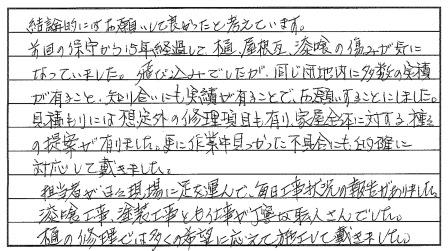 結論的にはお願いして良かったと考えています。
前回の保守から15年経過して、樋、屋根瓦、漆喰の傷みが気に
なっていました。飛び込みでしたが、同じ団地内に多数の実積
が有ること、知り合いにも実績が有ることで、お願いすることにしました。
見積もりには想定外の修理項目も有り、家屋全体に対する種々
の提案が有りました。更に作業中見つかった不具合にも的確に
対応して戴きました。
担当者が日々現場に足を運んで、毎日工事状況の報告がありました。
漆喰工事、塗装工事とも仕事が丁寧な職人さんでした。
樋の修理では多くの希望に応えて施工して戴きました。